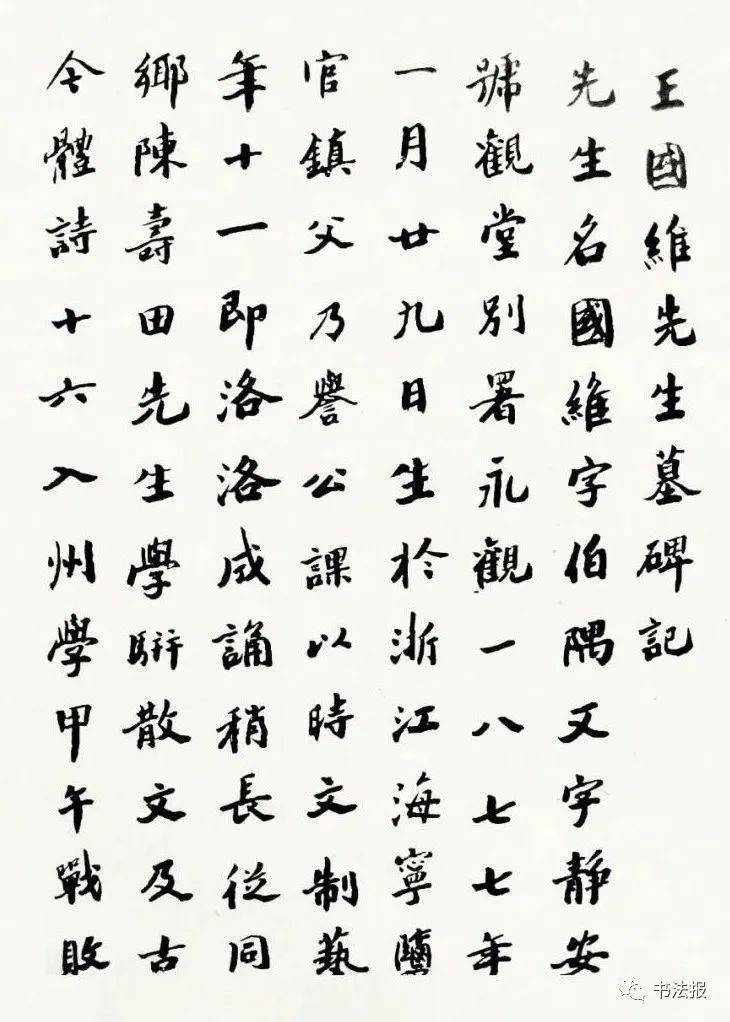 王國維先生墓碑記
先生名國維字伯隅又字靜安
號觀堂別署永觀一八七七年
一月廿九日生於浙江海寧鹽
官鎮父乃譽公課以時文制藝
年十一即洛洛成誦稍長從同
鄉陳壽田先生學駢散文及古
今體詩十六入州學甲午戰敗
书法报